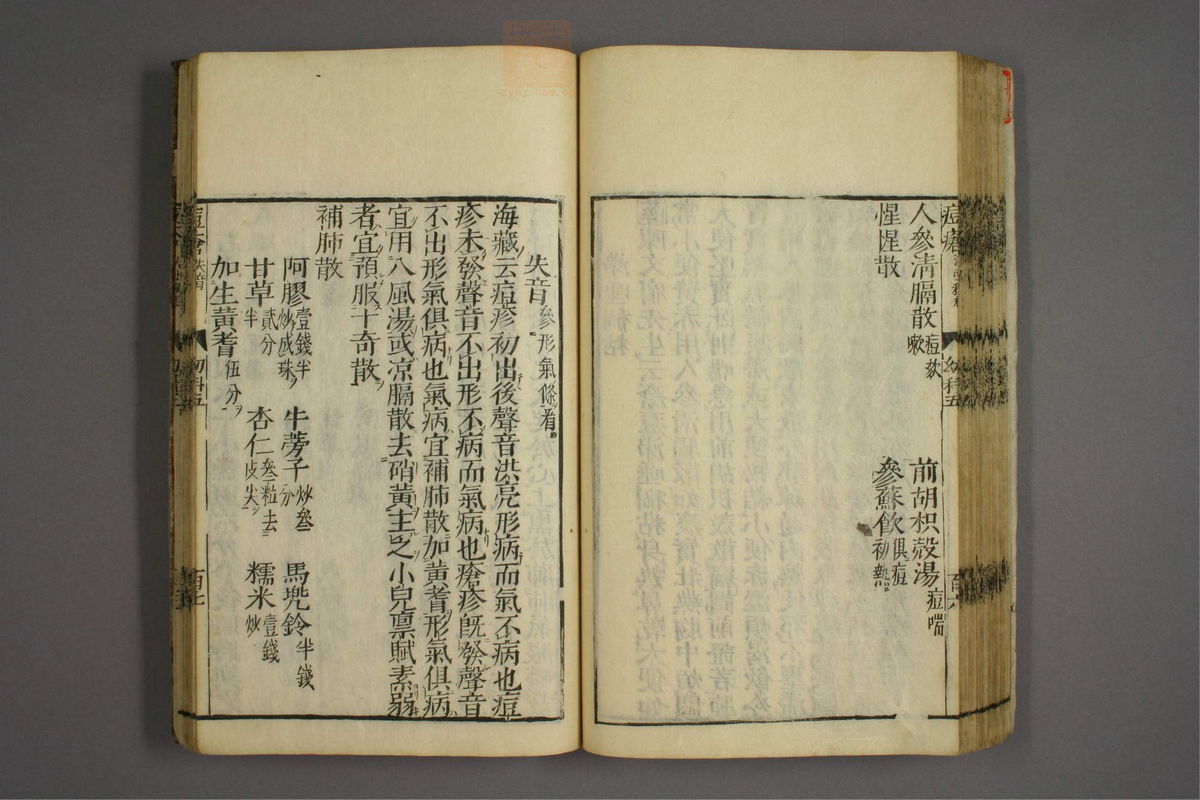 人參清膈散痘欬嗽 前胡枳殼湯痘喘
惺惺散 參蘇飲俱痘初熱
幼科五
百六
失音參形氣條看
海藏云痘疹初出後聲音洪亮形病而氣不病也痘
疹未發聲音不出形不病而氣病也瘡疹旣發聲音
不出形氣俱病也氣病宜補肺散加黃耆形氣俱病
宜用八風湯或凉膈散去硝黃主之小兒禀賦素弱
者宜預服十奇散
補肺散
阿膠壹錢半炒成珠 牛蒡子炒叄分 馬兜鈴半錢
甘草貳分半 杏仁叄粒去皮尖 糯米壹錢炒
加生黃耆伍分
痘瘡 失音
百七